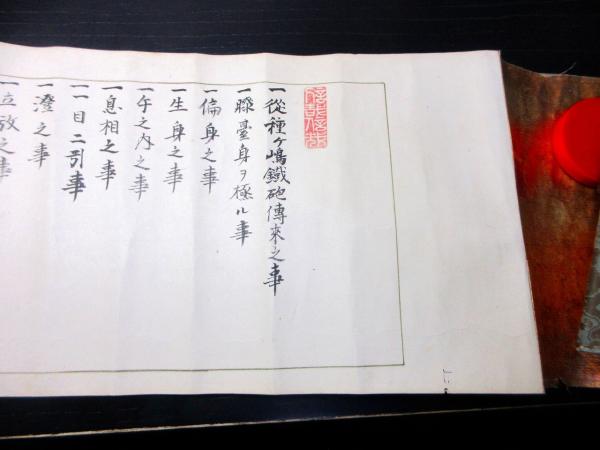 一從種ヶ嶋鐵砲傳來之事
一臺身ヲ極ル事
一倫身之事
一生身之事
一午之内之事
一息相之事
一一目二引事
一澄之事
一立放之事